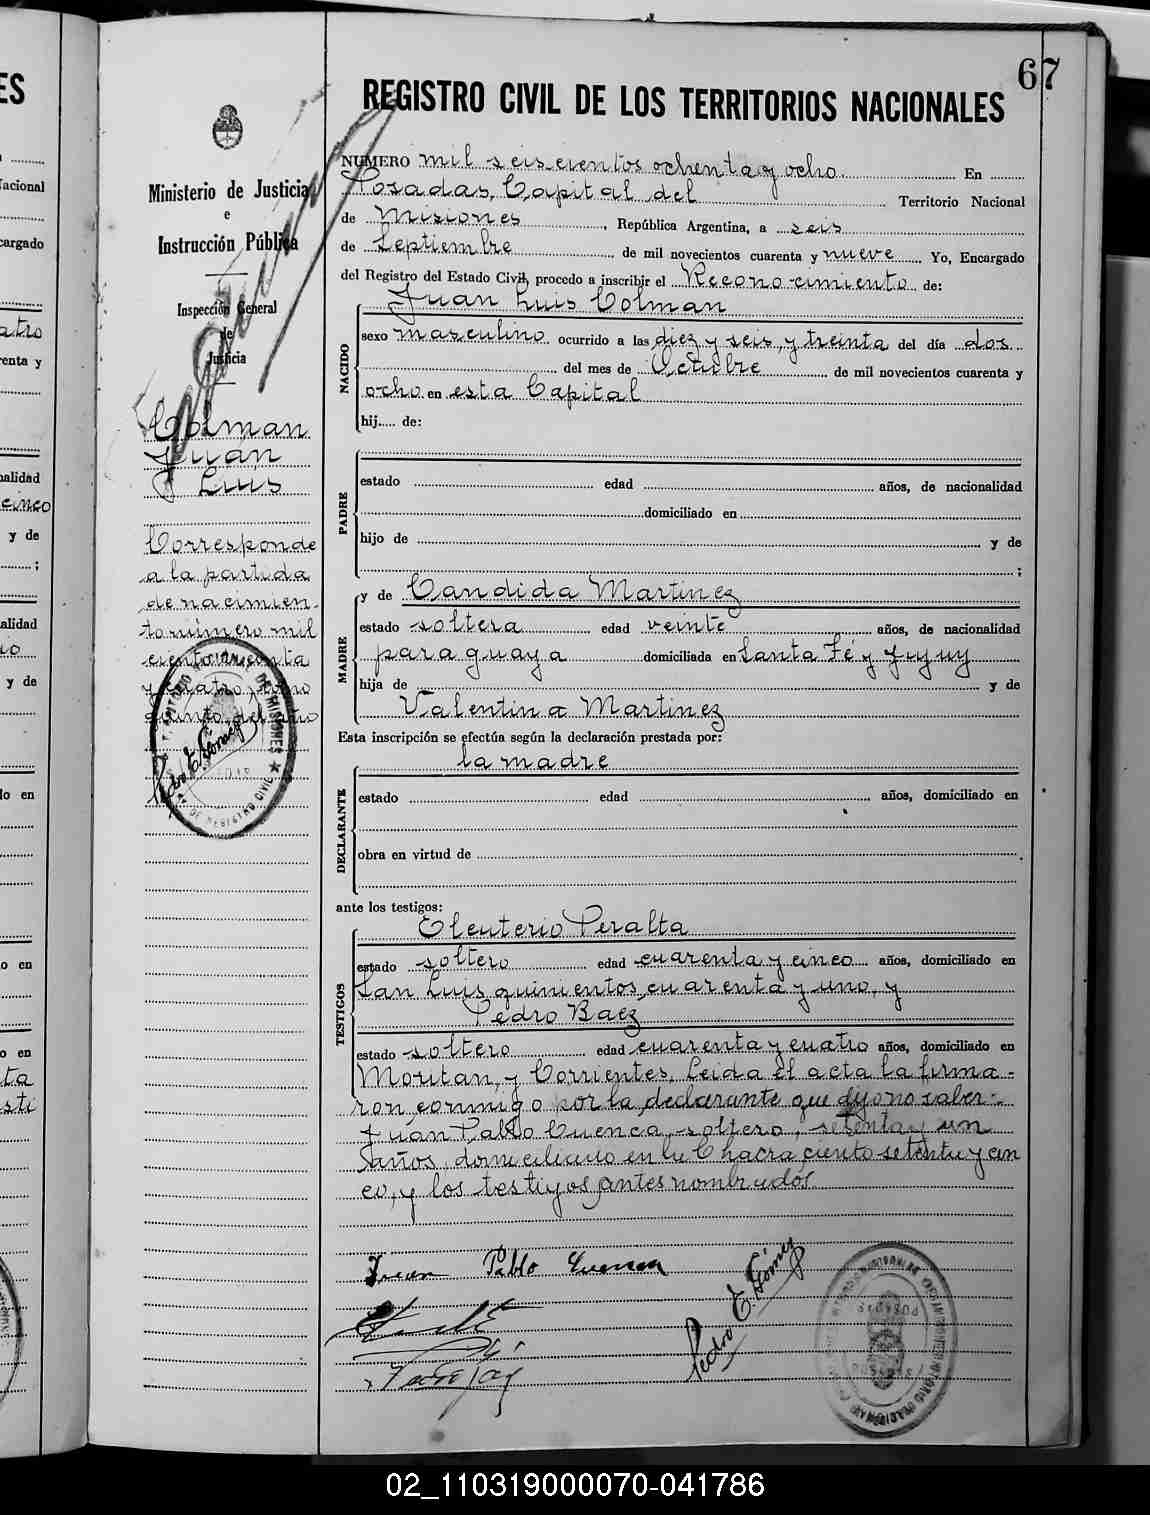 67
REGISTRO CIVIL DE LOS TERRITORIOS NACIONALES
Ministerio de Justicia
e
Instrucción Pública
Inspección General
de
Justicia
Colman
Juan
Luis
Corresponde
a la partida
de nacimien-
to número mil
ciento
y cuatro, tomo
quinto del año
NUMERO mil seiscientos ochenta y ocho. En
Posadas, Capital del Territorio Nacional
de Misiones, República Argentina, a seis
de Septiembre de mil novecientos cuarenta y nueve Yo, Encargado
del Registro del Estado Civil, procedo a inscribir el Reconocimiento de:
Juan Luis Colman
NACIDO
sexo masculino ocurrido a las diez y seis, y treinta del día dos
del mes de Octubre de mil novecientos cuarenta y
ocho en esta Capital
hij..... de:
PADRE
estado edad años, de nacionalidad
domiciliado en
hijo de y de
;
MADRE
y de Candida Martinez
estado soltera edad veinte años, de nacionalidad
paraguaya domiciliada en Santa Fé y Jujuy
hija de y de
Valentina Martinez
Esta inscripción se efectúa según la declaración prestada por:
la madre
DECLARANTE
estado edad años, domiciliado en
obra en virtud de
ante los testigos:
TESTIGOS
Eleuterio Peralta
estado soltero edad cuarenta y cinco años, domiciliado en
San Luis quinientos cuarenta y uno, y
Pedro Baez
estado soltero edad cuarenta y cuatro años, domiciliado en
Moritan, y Corrientes. Leida el acta la firma-
ron conmigo por la declarante que dijo no saber.
Juan Pablo Cuenca, soltero, setenta y un
años, domiciliado en la Chacra ciento setenta y cin
co, y los testigos antes nombrados.
Juan Pablo Cuenca
Pedro E. Gómez
02_110319000070-041786